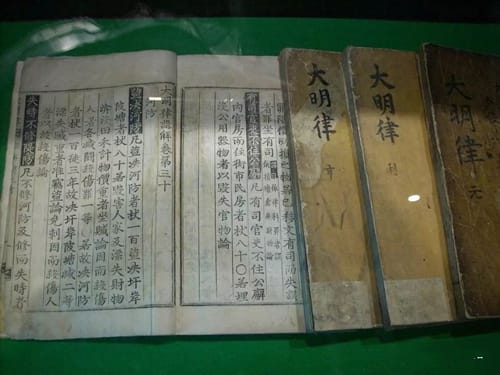 物異已移文有司而失誤
者罪坐有司
有司官吏不住公廨凡有司官吏不住公廨
內官房而住街市民房者杖八十○若埋
沒公用器物者以毀失官物論
大明律講解卷第三十
河防
盜決河防凡盜決河防者杖一百盜決圩岸
陂塘者杖八十若毀害人家及漂失財物
淹沒田禾計物價重者坐贓論因而殺傷
人者各減鬪殺傷罪一等○若故決河防
者杖一百徒三年故決圩岸陂塘減二等
漂失贓重者准竊盜論免刺因而殺傷人
者以故殺傷論
失時不修隄防凡不修河防及修而失時者
大明律 元
大明律 利
大明律 亨